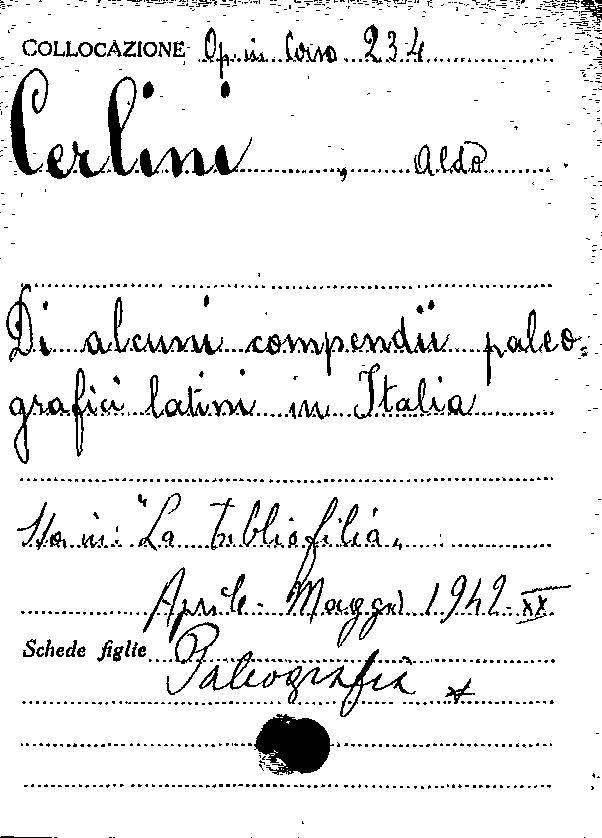 COLLOCAZIONE Op. in Corso 234
Cerlini, Aldo
Di alcuni compendii paleo-
grafici latini in Italia
Sta in: "La bibliofilia"
Aprile-Maggio 1942-XX
Schede figlie Paleografia